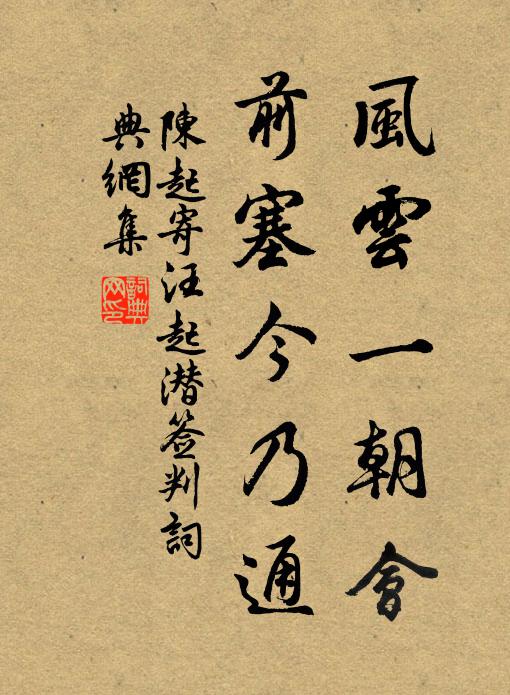 風雲一朝會
前塞今乃通
陳起寄汪起潜签判詞
典網集
詞典網印